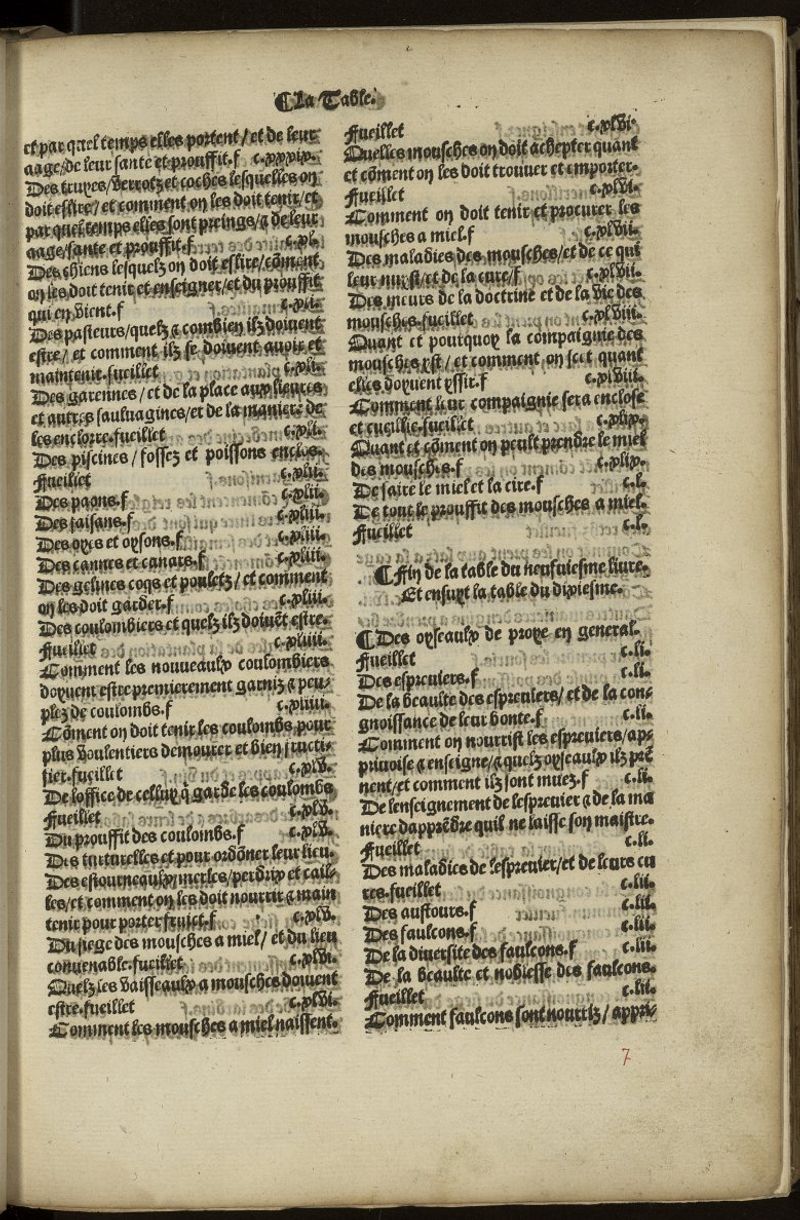 ¶La Table.
et par quel temps elles portent/et de leur
aage/de leur sante et prouffit.f c.xxxix.
Des truyes/verrotz et coches lesquelles on
doit eslire/et comment on les doit tenir/et
par quel temps elles sont preings/⁊ de leur
aage/sante et prouffit.f c.xl.
Des chiens lesquelz on doit eslire/cōment
on les doit tenir et enseigner/et du prouffit
qui en vient.f c.xli.
Des pasteurs/quelz ⁊ combien ilz doiuent
estre/et comment ilz se doiuent auoir et
maintenir.fueillet c.xli.
Des garennes/et de la place aux lieures
et autres sauluagines/et de la maniere de
les enclorre.fueillet c.xlii.
Des piscines/fossez et poissons enclos.
Fueillet c.xlii.
Des paons.f c.xliii.
Des faisans.f c.xliii.
Des oyes et oysons.f c.xliii.
Des cannes et canars.f c.xliii.
Des gelines coqs et pouletz/et comment
on les doit garder.f c.xliii.
Des coulombiers et quelz ilz doiuēt estre.
Fueillet c.xliiii.
Comment les nouueaulx coulombiers
doyuent estre premierement garniz ⁊ peu/
plez de coulombs.f c.xliiii.
Cōment on doit tenir les coulombs pour
plus voulentiers demourer et bien fructi/
fier.fueillet c.xlv.
De loffice de celluy q̄ garde les coulombs
Fueillet c.xlv.
Du prouffit des coulombs.f c.xlv.
Des turturelles et pour ordōner leur lieu.
Des estourneaulx/merles/perdrix et cail/
les/et comment on les doit nourrir ⁊ main
tenir pour porter fruict.f c.xlv.
Du siege des mousches a miel/et du lieu
conuenable.fueillet c.xlvi.
Quelz les vaisseaulx a mousches doiuent
estre.fueillet c.xlvi.
Comment les mousches a miel naissent.
Fueillet c.xlvi.
Quelles mousches on doit achepter quant
et cōment on les doit trouuer et emporter.
Fueillet c.xlvi.
Comment on doit tenir et procurer les
mousches a miel.f c.xlvii.
Des maladies des mousches/et de ce qui
leur nuist/et de la cure/f c.xlvii.
Des meurs de la doctrine et de la vie des
mousches.fueillet c.xlviii.
Quant et pourquoy la compaignie des
mousches yst/et comment on scet quant
elles doyuent yssir.f c.xlviii.
Comment leur compaignie sera enclose
et cueillie.fueillet c.xlix.
Quant et cōment on peult prendre le miel
des mousches.f c.xlix.
De faire le miel et la cire.f c.l.
De tout le prouffit des mousches a miel.
Fueillet c.l.
¶Fin de la table du neufuiesme liure.
Et ensuyt la table du dixiesme.
¶Des oyseaulx de proye en general.
Fueillet c.li.
Des espreuiers.f c.li.
De la beaulte des espreuiers/et de la con/
gnoissance de leur bonte.f c.li.
Comment on nourrist les espreuiers/ap/
priuoise ⁊ enseigne/⁊ quelz oyseaulx ilz prē
nent/et comment ilz sont muez.f c.li.
De lenseignement de lespreuier ⁊ de la ma
niere dapprēdre quil ne laisse son maistre.
Fueillet c.li.
Des maladies de lespreuier/et de leurs cu
res.fueillet c.lii.
Des austours.f c.lii.
Des faulcons.f c.lii.
De la diuersite des faulcons.f c.lii.
De la beaulte et noblesse des faulcons.
Fueillet c.lii.
Comment faulcons sont nourriz/appri/
7